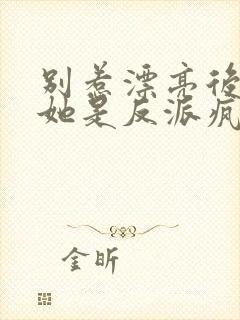 别惹漂亮後
她是反派疯
金昕